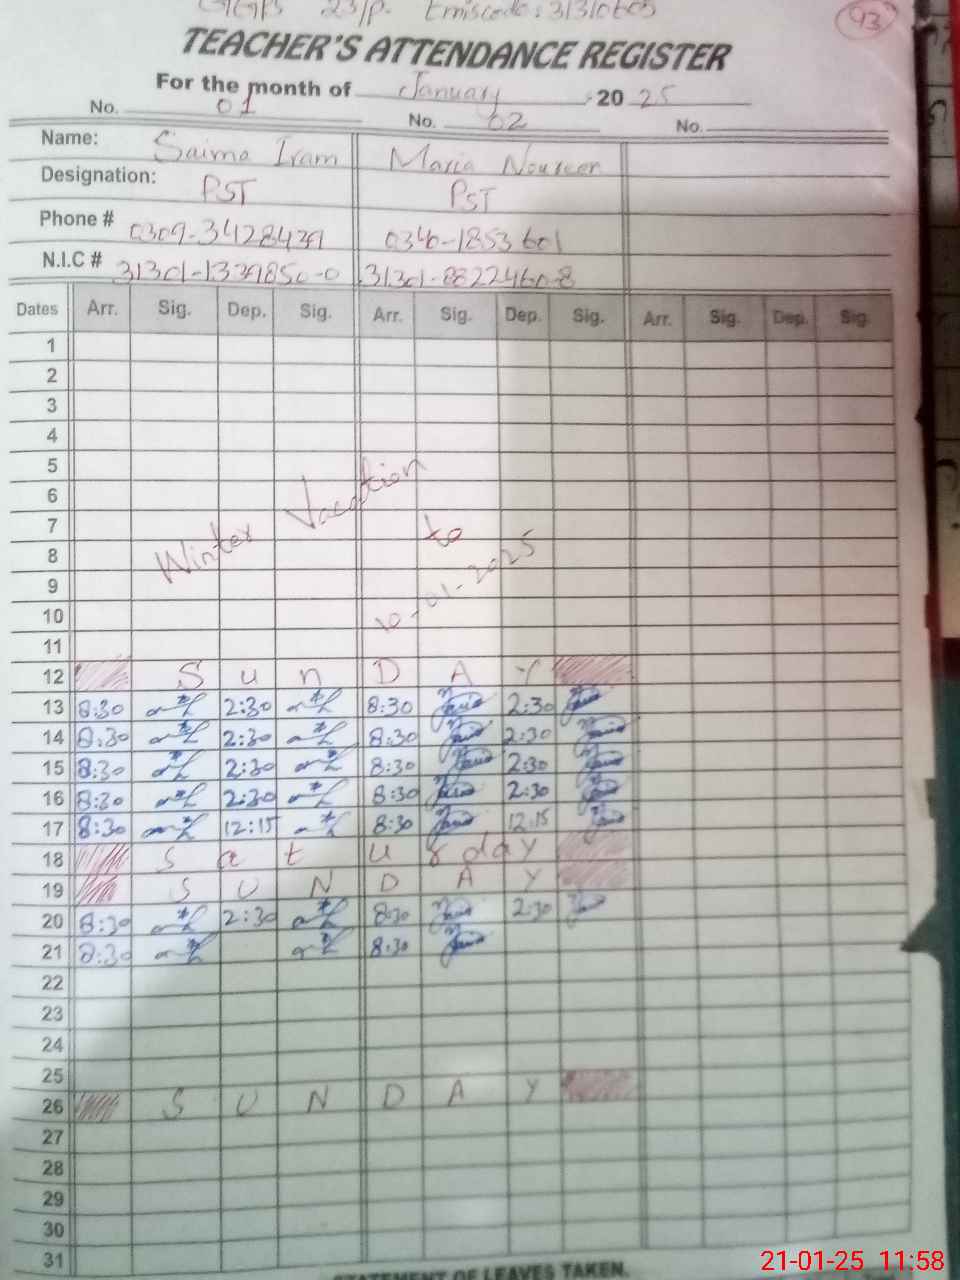 23/P. Emiscode: 31310605
93
TEACHER'S ATTENDANCE REGISTER
For the month of January 2025
No. 01 No. 02 No.
Name: Saima Iram Maria Noureen
Designation: PST PST
Phone # 0309-3428439 0340-1853601
N.I.C # 31301-1339850-0 31301-8822460-8
Dates Arr. Sig. Dep. Sig. Arr. Sig. Dep. Sig. Arr. Sig. Dep. Sig.
1
2
3
4
5
6
7
8
9
10
11
Winter Vacation to
10-01-2025
12 S u n D A Y
13 8:30 2:30 8:30 2:30
14 8:30 2:30 8:30 2:30
15 8:30 2:30 8:30 2:30
16 8:30 2:30 8:30 2:30
17 8:30 12:15 8:30 12:15
18 S a t u r d a y
19 S U N D A Y
20 8:30 2:30 8:30 2:30
21 8:30 8:30
22
23
24
25
26 S U N D A Y
27
28
29
30
31
STATEMENT OF LEAVES TAKEN.
21-01-25 11:58